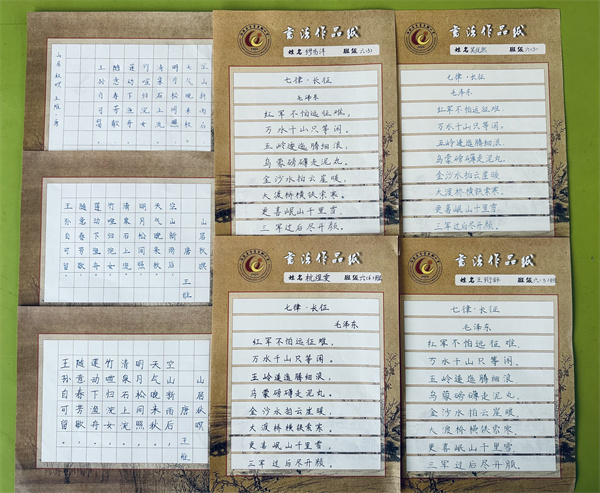 山居秋暝 王维 唐
空山新雨后，
天气晚来秋。
明月松间照，
清泉石上流。
竹喧归浣女，
莲动下渔舟。
随意春芳歇，
王孙自可留。
書法作品纸
姓名 班级
七律·长征
毛泽东
红军不怕远征难，
万水千山只等闲。
五岭逶迤腾细浪，
乌蒙磅礴走泥丸。
金沙水拍云崖暖，
大渡桥横铁索寒。
更喜岷山千里雪，
三军过后尽开颜。
書法作品纸
姓名 班级
七律·长征
毛泽东
红军不怕远征难，
万水千山只等闲。
五岭逶迤腾细浪，
乌蒙磅礴走泥丸。
金沙水拍云崖暖，
大渡桥横铁索寒。
更喜岷山千里雪，
三军过后尽开颜。
山居秋暝
唐 王维
空山新雨后，
天气晚来秋。
明月松间照，
清泉石上流。
竹喧归浣女，
莲动下渔舟。
随意春芳歇，
王孙自可留。
山居秋暝
唐 王维
空山新雨后，
天气晚来秋。
明月松间照，
清泉石上流。
竹喧归浣女，
莲动下渔舟。
随意春芳歇，
王孙自可留。
書法作品纸
姓名 杭煜雯 班级
七律·长征
毛泽东
红军不怕远征难，
万水千山只等闲。
五岭逶迤腾细浪，
乌蒙磅礴走泥丸。
金沙水拍云崖暖，
大渡桥横铁索寒。
更喜岷山千里雪，
三军过后尽开颜。
書法作品纸
姓名 班级
七律·长征
毛泽东
红军不怕远征难，
万水千山只等闲。
五岭逶迤腾细浪，
乌蒙磅礴走泥丸。
金沙水拍云崖暖，
大渡桥横铁索寒。
更喜岷山千里雪，
三军过后尽开颜。